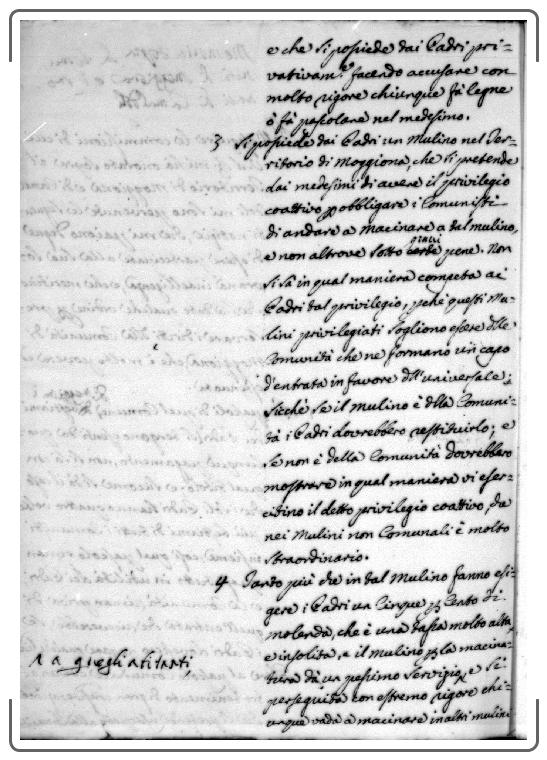 e che si posiede dai Padri pri-
vativam.e facendo accusare con
molto rigore chiunque fà legne
ò fà pascolare nel medesimo.
3 Si posiede dai Padri un Mulino nel Ter-
ritorio di Moggiona, che si pretende
dai medesimi di avere il privilegio
coattivo p obbligare i Comunisti
di andare a macinare a tal mulino,
e non altrove sotto certe gravi pene. Non
si sà in qual maniera competa ai
Padri tal privilegio, pche questi Mu-
lini privilegiati sogliono essere dlle
Comunità che ne formano un capo
d'entrata in favore dll'universale;
Sicchè se il Mulino è dlla Comuni-
tà i Padri dovrebbero restituirlo; e
se non è della Comunità dovrebbero
mostrare in qual maniera vi eser-
citino il detto privilegio coattivo, che
nei Mulini non Comunali è molto
straordinario.
4 Tanto più che in tal Mulino fanno esi-
gere i Padri un Cinque p Cento di
molenda, che è una tassa molto alta,
e insolita, e il Mulino p la macina-
tura dà un pesimo servizio, e si
perseguita con estremo rigore chi-
unque vada a macinare in altri mulini
a quegli abitanti,